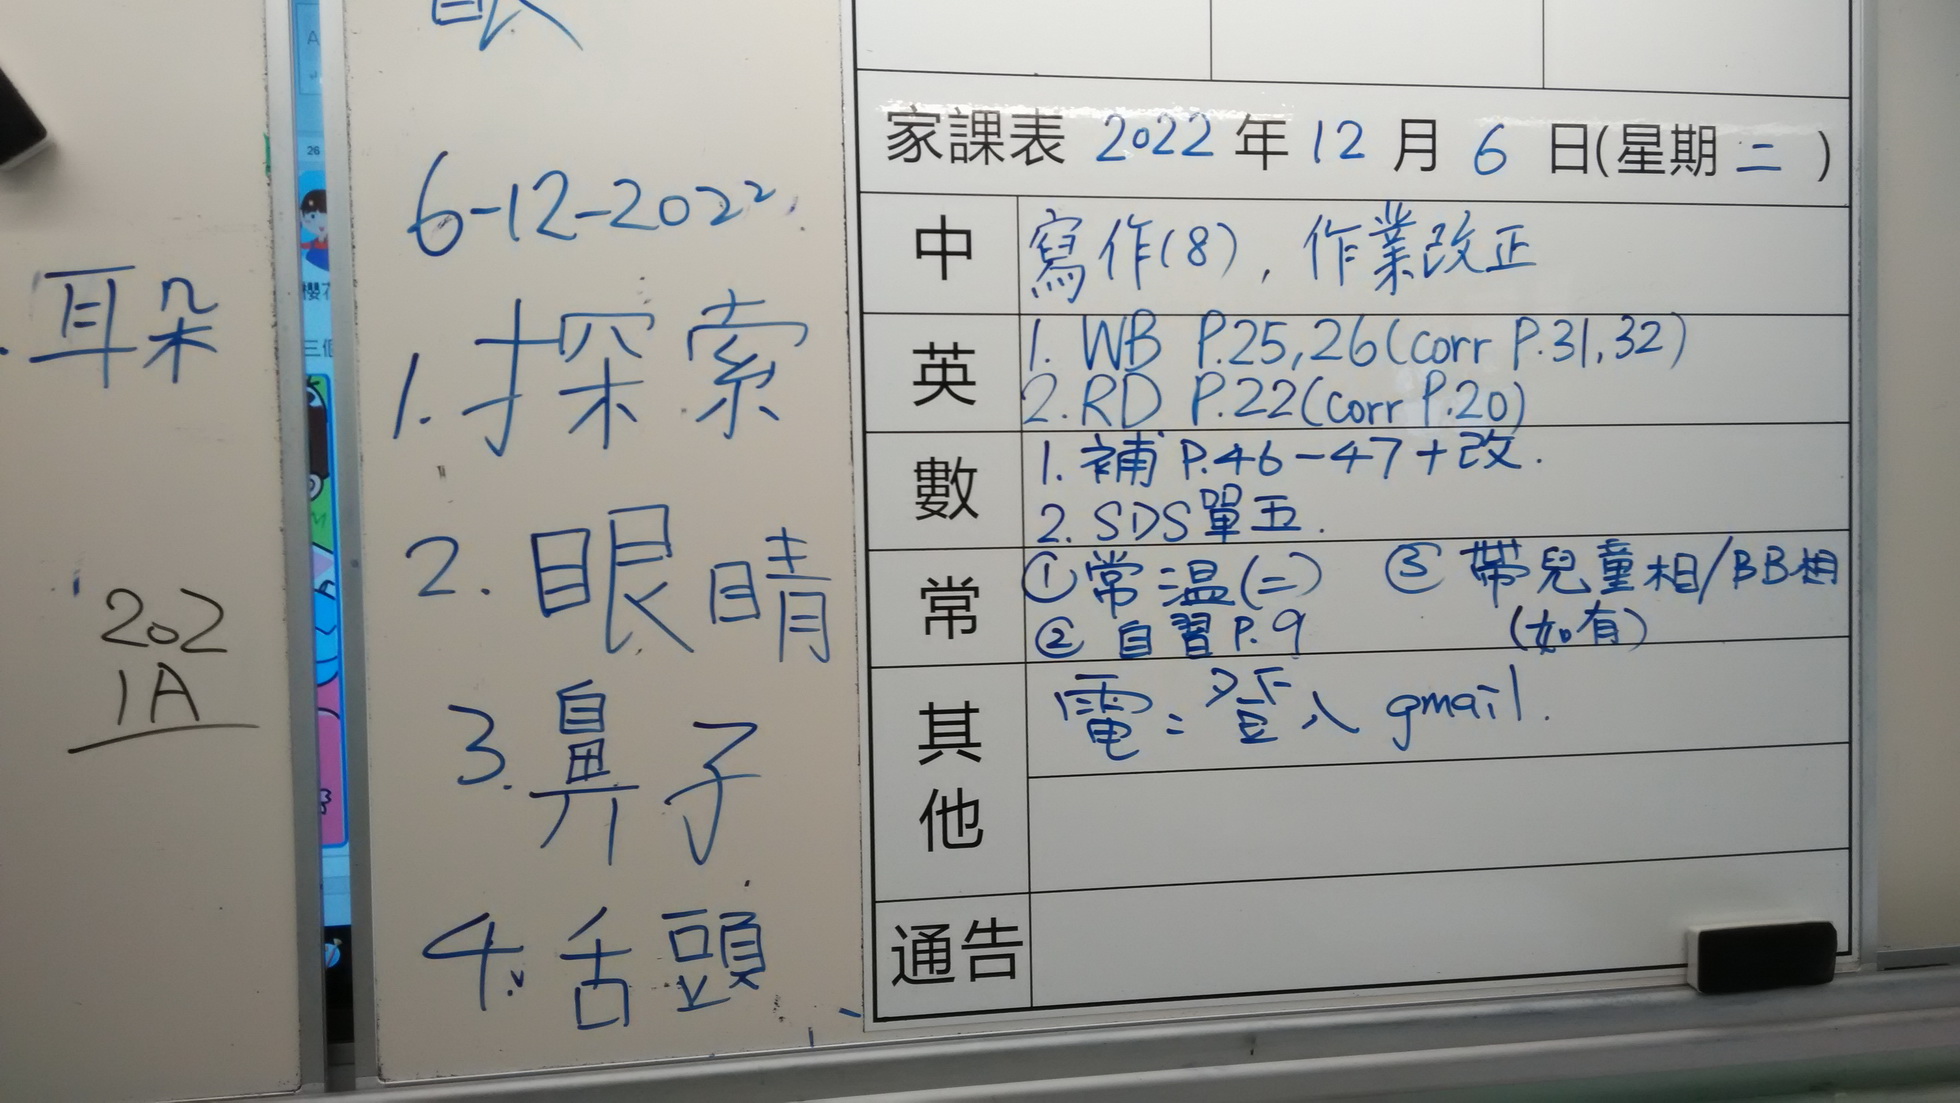 耳朵
202
1A
26
6-12-2022
1. 探索
2. 眼睛
3. 鼻子
4. 舌頭
家課表 2022 年 12 月 6 日(星期 二 )
中 寫作(8), 作業改正
英 1. WB P.25,26(corr P.31,32)
2. RD P.22(corr P.20)
數 1. 補 P.46-47+改.
2. SDS單五.
常 ①常溫(二) ③ 帶兒童相/BB相
② 自習 P.9 (如有)
其他 電: 登入 gmail.
通告